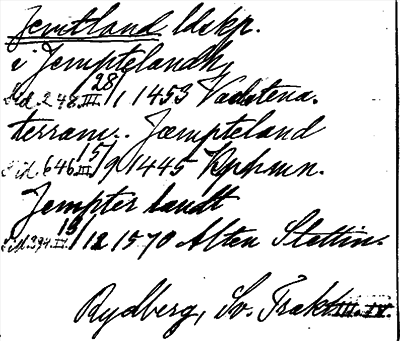 Jemtland ldskp.
i Jemptelandh
Sid. 248.III. 28/1 1453 Vadstena.
terram.. Jæmpteland
Sid. 646.III. 15/9 1445 Kphmn.
Jempter landt
Sid. 394.IV. 13/12 1570 Alten Stettin.
Rydberg, Sv. Trakt III. IV.